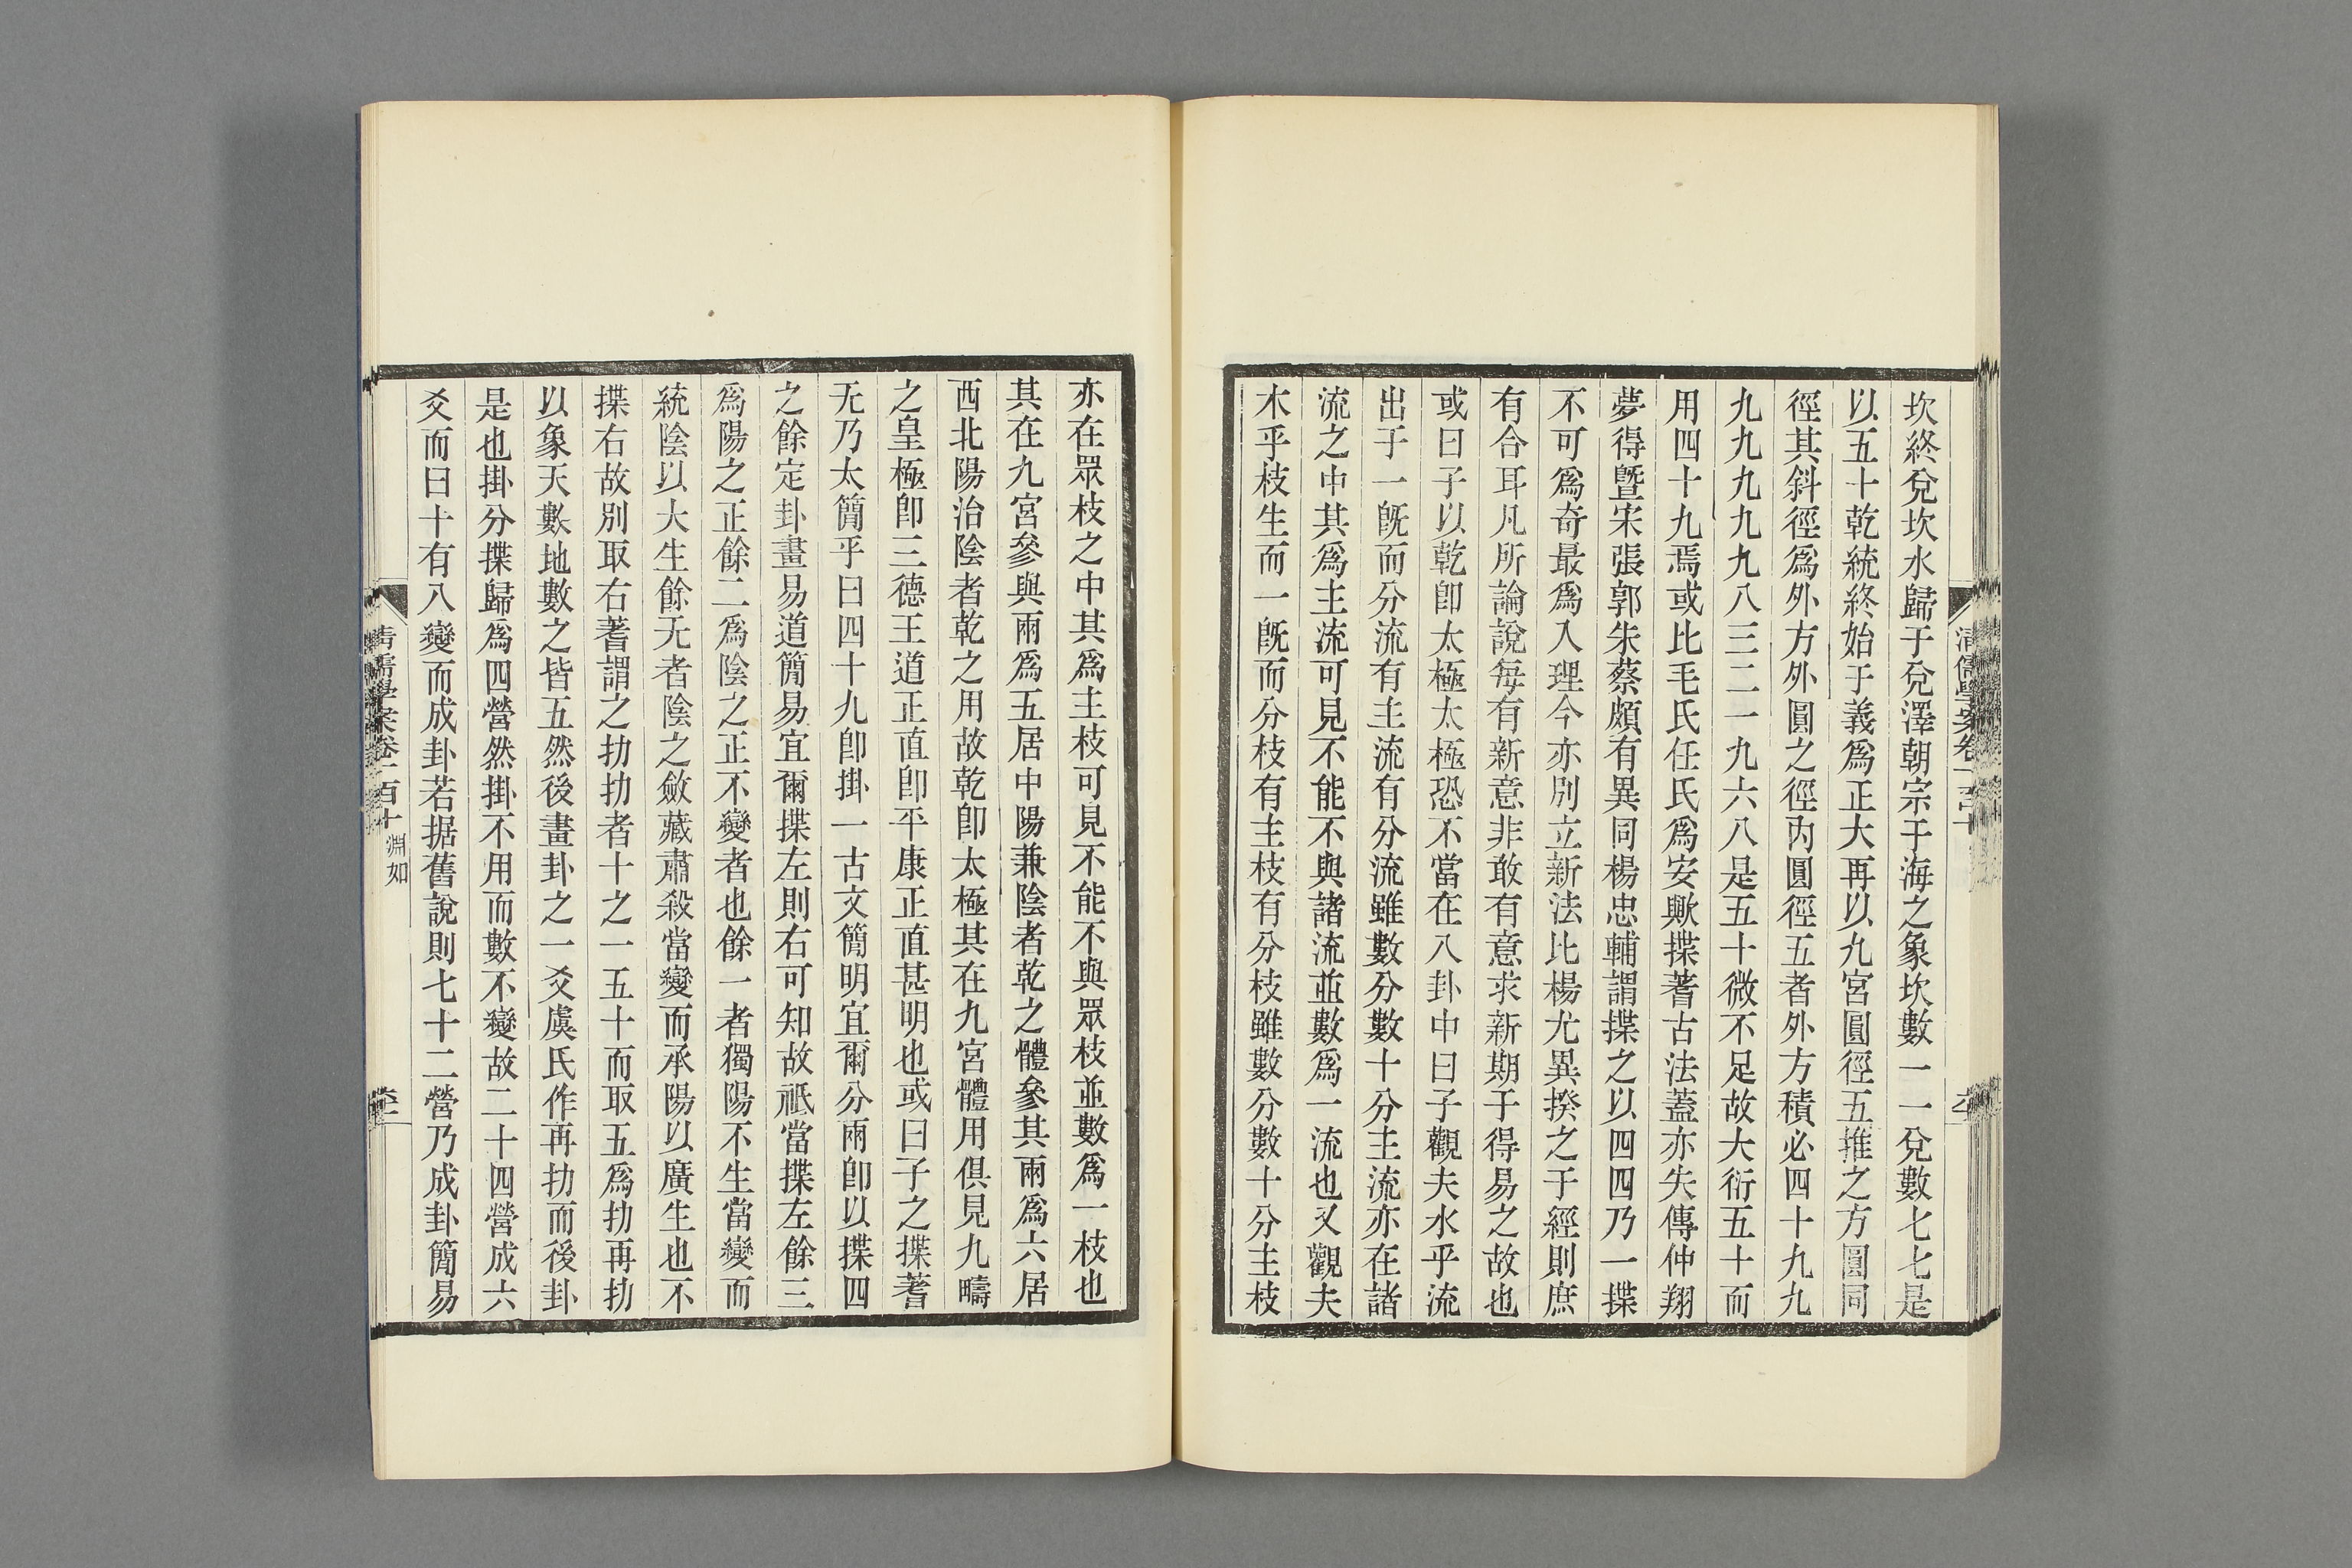 坎終兌坎水歸于兌澤朝宗于海之象坎數一一兌數七七是
以五十乾統終始于義爲正大再以九宮圓徑五推之方圓同
徑其斜徑爲外方外圓之徑內圓徑五者外方積必四十九九
九九九九九八三二一九六八是五十微不足故大衍五十而
用四十九焉或比毛氏任氏爲安歟揲蓍古法蓋亦失傳仲翔
夢得暨宋張郭朱蔡頗有異同楊忠輔謂揲之以四四乃一揲
不可爲奇最爲入理今亦別立新法比楊尤異揆之于經則庶
有合耳凡所論說每有新意非敢有意求新期于得易之故也
或曰子以乾卽太極太極恐不當在八卦中曰子觀夫水乎流
出于一旣而分流有主流有分流雖數分數十分主流亦在諸
流之中其爲主流可見不能不與諸流並數爲一流也又觀夫
木乎枝生而一旣而分枝有主枝有分枝雖數分數十分主枝
亦在眾枝之中其爲主枝可見不能不與眾枝並數爲一枝也
其在九宮參與兩爲五居中陽兼陰者乾之體參其兩爲六居
西北陽治陰者乾之用故乾卽太極其在九宮體用俱見九疇
之皇極卽三德王道正直卽平康正直甚明也或曰子之揲蓍
无乃太簡乎曰四十九卽掛一古文簡明宜爾分兩卽以揲四
之餘定卦畫易道簡易宜爾揲左則右可知故祗當揲左餘三
爲陽之正餘二爲陰之正不變者也餘一者獨陽不生當變而
統陰以大生餘无者陰之斂藏肅殺當變而承陽以廣生也不
揲右故別取右蓍謂之扐扐者十之一五十而取五爲扐再扐
以象天數地數之皆五然後畫卦之一爻虞氏作再扐而後卦
是也掛分揲歸爲四營然掛不用而數不變故二十四營成六
爻而曰十有八變而成卦若据舊說則七十二營乃成卦簡易
清儒學案卷一百十 淵如